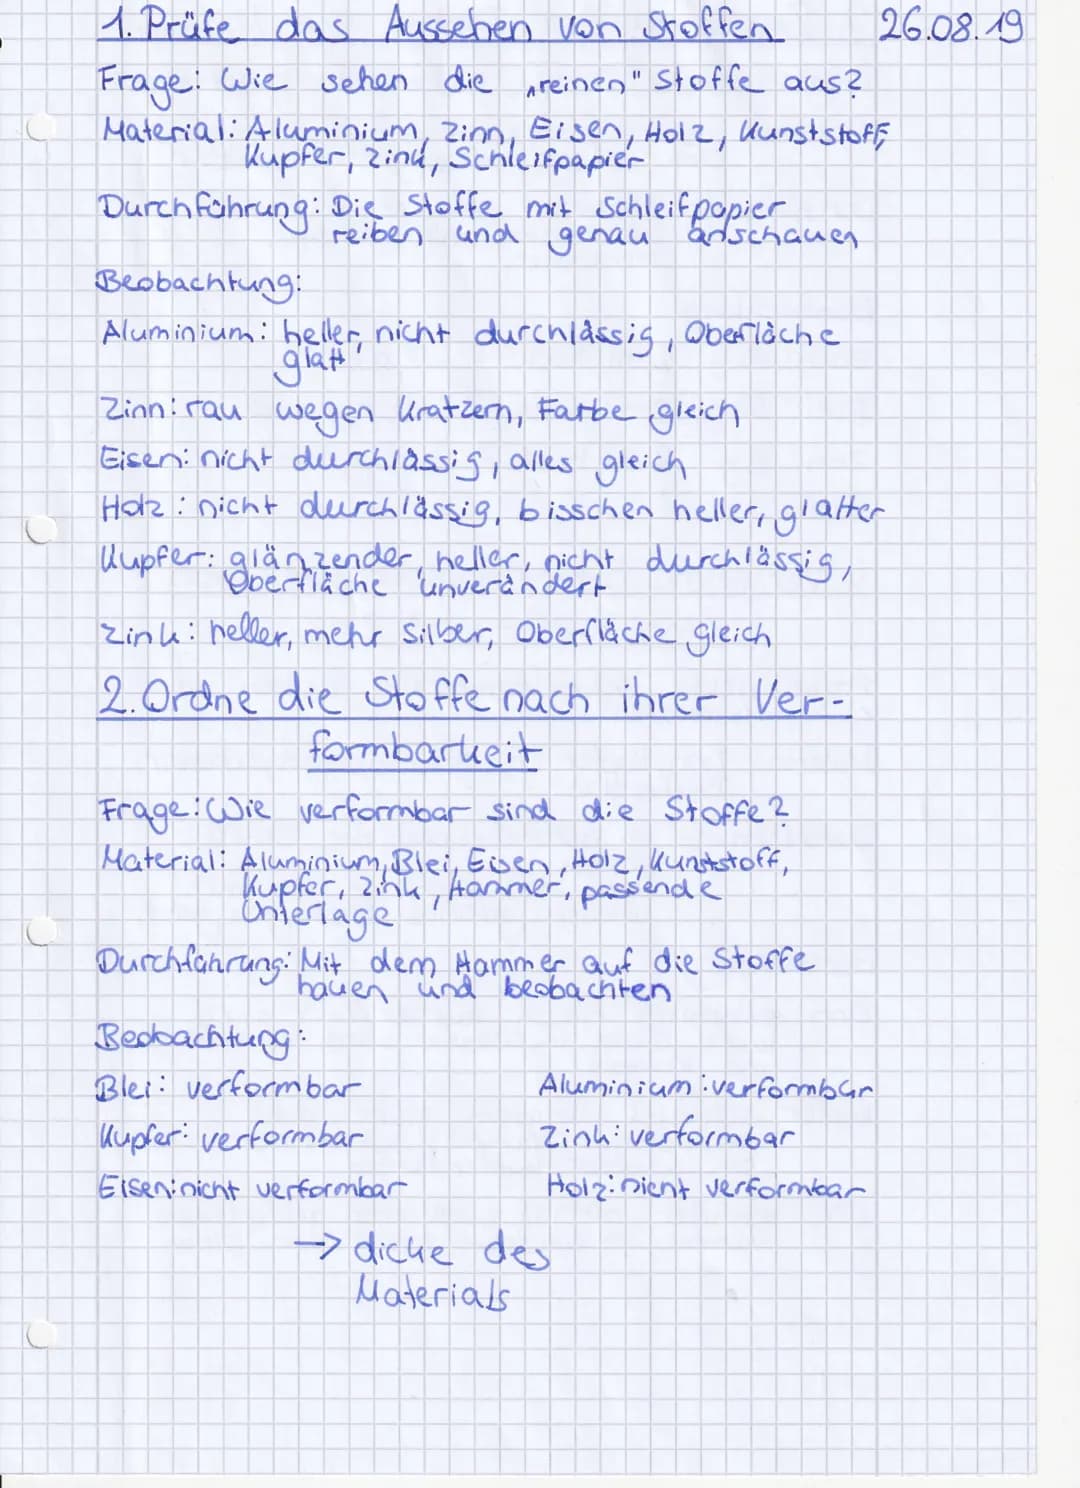 1. Prüfe das Aussehen von Stoffen 26.08.19
Frage: Wie sehen die „reinen" Stoffe aus?
Material: Aluminium, Zinn, Eisen, Holz, Kunststoff,
Kupfer, Zink, Schleifpapier
Durchführung: Die Stoffe mit Schleifpapier
reiben und genau anschauen
Beobachtung:
Aluminium: heller, nicht durchlässig, Oberfläche
glatt
Zinn: rau wegen Kratzern, Farbe gleich
Eisen: nicht durchlässig, alles gleich
Holz: nicht durchlässig, bisschen heller, glatter
Kupfer: glänzender, heller, nicht durchlässig,
Oberfläche unverändert
Zink: heller, mehr silber, Oberfläche gleich
2. Ordne die Stoffe nach ihrer Ver-
formbarkeit
Frage: Wie verformbar sind die Stoffe?
Material: Aluminium, Blei, Eisen, Holz, Kunststoff,
Kupfer, Zink, Hammer, passende
Unterlage
Durchführung: Mit dem Hammer auf die Stoffe
hauen und beobachten
Beobachtung:
Blei: verformbar Aluminium: verformbar
Kupfer: verformbar Zink: verformbar
Eisen: nicht verformbar Holz: nicht verformbar
→ dicke des
Materials